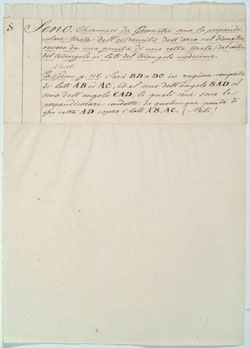 S Seno. Chiamasi da Geometri seno la perpendi-
colare tirata dall'estremità dell'arco sul diametro
ovvero da una punta di una retta tirata dal
del triangolo ai lati del triangolo medesimo.
p. 118. Sarà BD a DC in ragion composta
de' lati AB ed AC, ed al seno dell'angolo BAD al
seno dell'angolo CAD, le quali sono le
perpendicolari condotte da qualunque punto di
essa retta AD sopra i lati AB, AC.